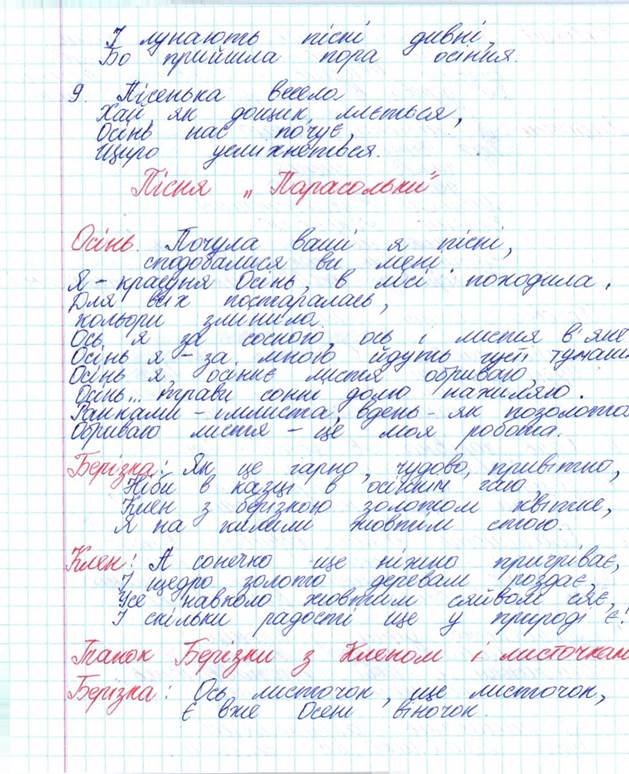 І лунають пісні дивні,
Бо прийшла пора осіння.
9. Пісенька весела
Хай, як дощик, ллється,
Осінь нас почує,
Щиро усміхнеться.
Пісня „Парасольки"
Осінь. Почула ваші я пісні,
сподобалися ви мені.
Я – красуня Осінь, в лісі походила,
Для всіх постаралась,
кольори змінила.
Ось я за сосною, ось і листя в'яне
Осінь я – за мною йдуть густі тумани
Осінь я, осіннє листя обриваю,
Осінь... трави сонні долю нахиляю.
Ранками – імлиста, вдень – як позолота
Обриваю листя – це моя робота.
Берізка: Як це гарно, чудово, привітно,
Ніби в казці в осіннім гаю
Клен з берізкою золотом квітне,
Я на килимі жовтім стою.
Клен: А сонечко ще ніжно пригріває,
І щедро золото деревам роздає,
Усе навколо жовтим сяйвом сяє,
І скільки радості ще у природі є!
Танок Берізки з Кленом і листочкам
Берізка: Ось листочок, ще листочок,
Є вже Осені віночок.